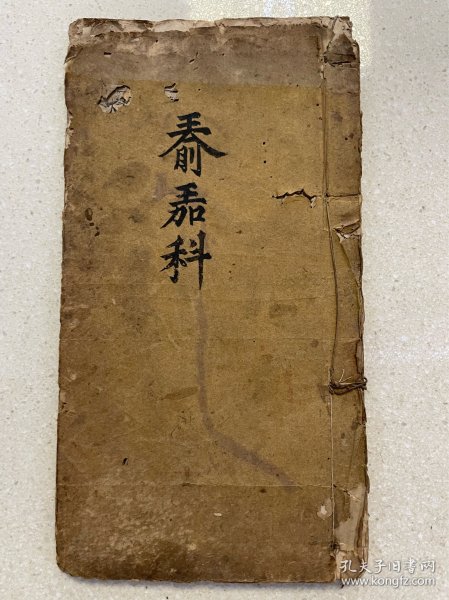 瑜珈科
孔夫子旧书网
www.kongfz.com